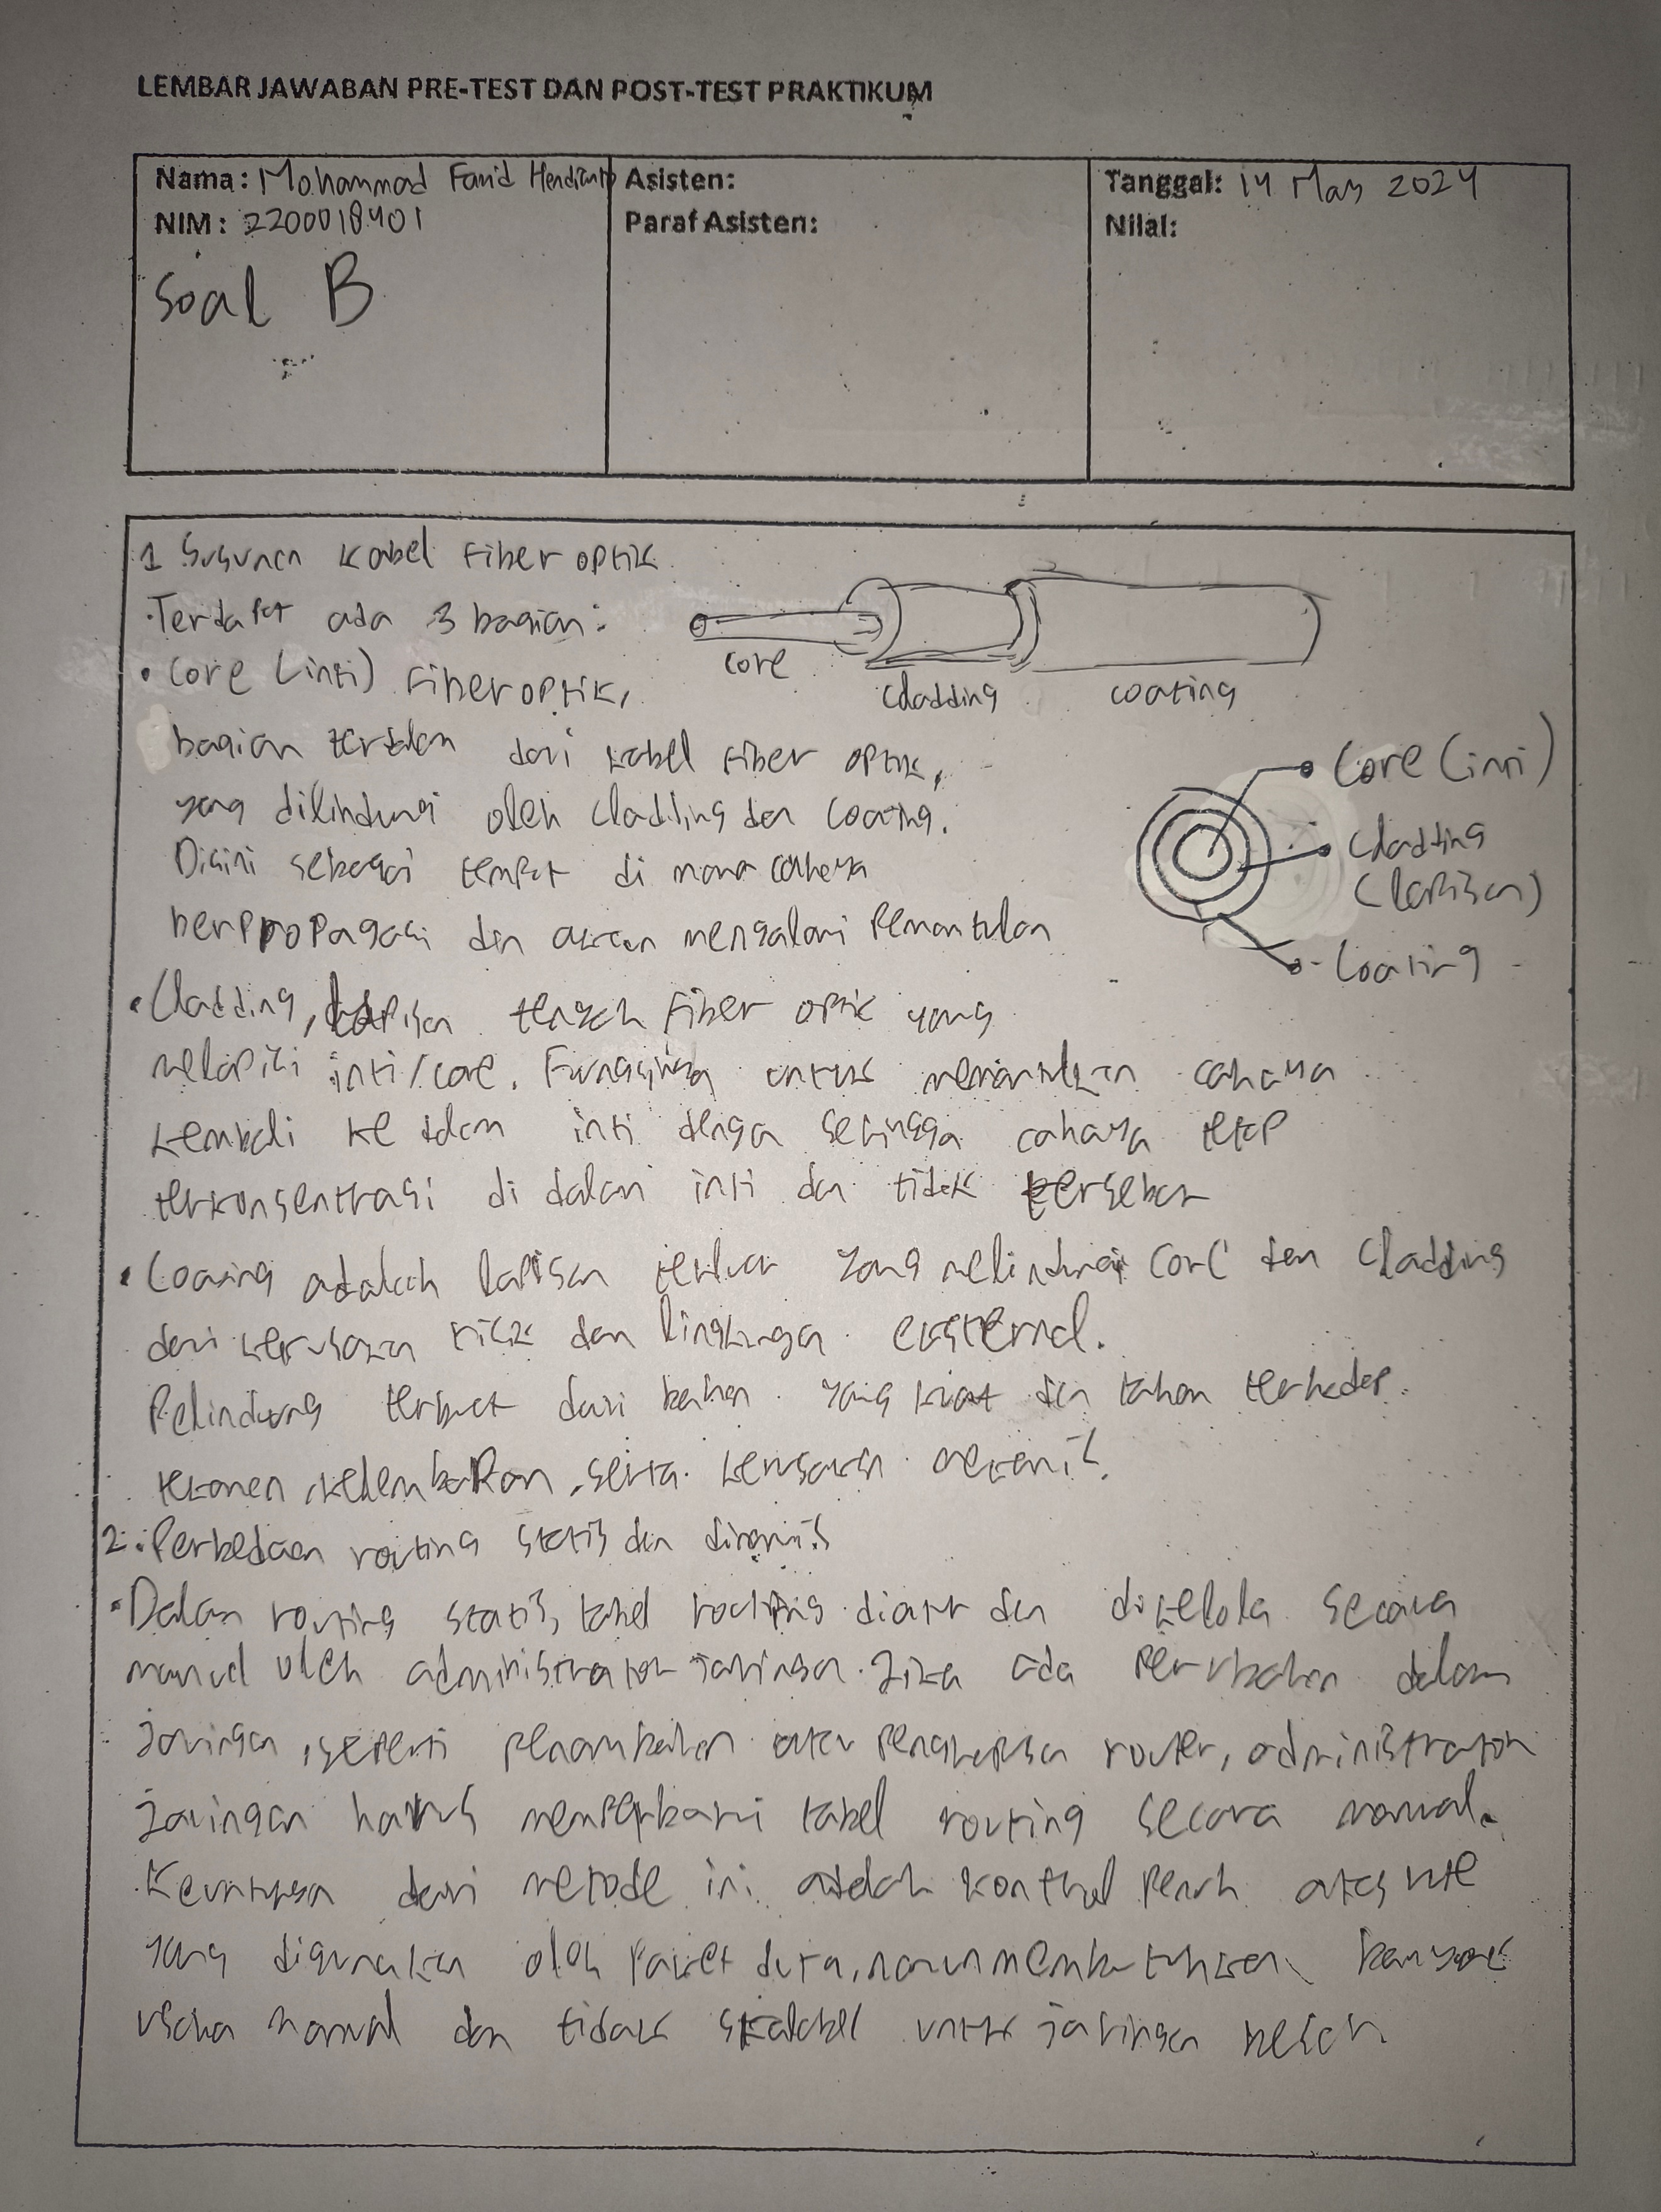 LEMBAR JAWABAN PRE-TEST DAN POST-TEST PRAKTIKUM
Nama: Mohammad Farid Hendianto
NIM: 2200018401
Soal B
Asisten:
Paraf Asisten:
Tanggal: 14 May 2024
Nilai:
1 Susunan kabel fiber optik
Terdapat ada 3 bagian:
• Core (inti) fiber optik,
core
cladding
coating
bagian terdalam dari kabel fiber optik,
yang dilindungi oleh cladding dan coating.
Disini sebagai tempat di mana cahaya
berpropagasi dan akan mengalami pemantulan
Core (inti)
Cladding
(lapisan)
Coating
• Cladding, lapisan tengah fiber optik yang
melapisi inti/core. Fungsinya untuk memantulkan cahaya
kembali ke dalam inti dengan sehingga cahaya tetap
terkonsentrasi di dalam inti dan tidak tersebar
• Coating adalah lapisan terluar yang melindungi core dan cladding
dari kerusakan fisik dan lingkungan eksternal.
Pelindung terbuat dari bahan yang kuat dan tahan terhadap
tekanan, kelembapan, serta kerusakan mekanis.
2. Perbedaan routing statis dan dinamis
• Dalam routing statis, tabel routing diatur dan dikelola secara
manual oleh administrator jaringan. Jika ada perubahan dalam
jaringan, seperti penambahan atau penghapusan router, administrator
jaringan harus memperbarui tabel routing secara manual.
Keuntungan dari metode ini adalah kontrol penuh atas rute
yang digunakan oleh paket data, namun membutuhkan banyak
usaha manual dan tidak skalabel untuk jaringan besar.